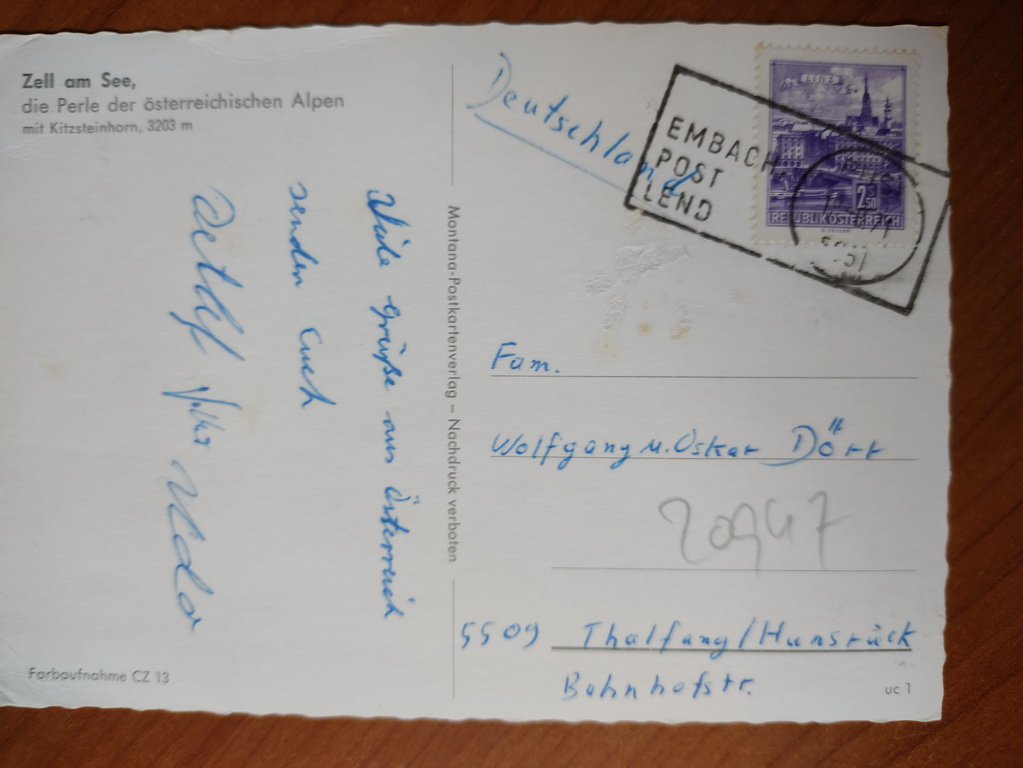 Zell am See,
die Perle der österreichischen Alpen
mit Kitzsteinhorn, 3203 m
Viele Grüße aus Österreich
senden Euch
Detlef Volker Udo
Farbaufnahme CZ 13
Montana-Postkartenverlag – Nachdruck verboten
Deutschland
EMBACH
POST
LEND
LINZ
2.50
REPUBLIK ÖSTERREICH
Fam.
Wolfgang u. Oskar Dörr
20947
5509 Thalfang/Hunsrück
Bahnhofstr.
uc 1